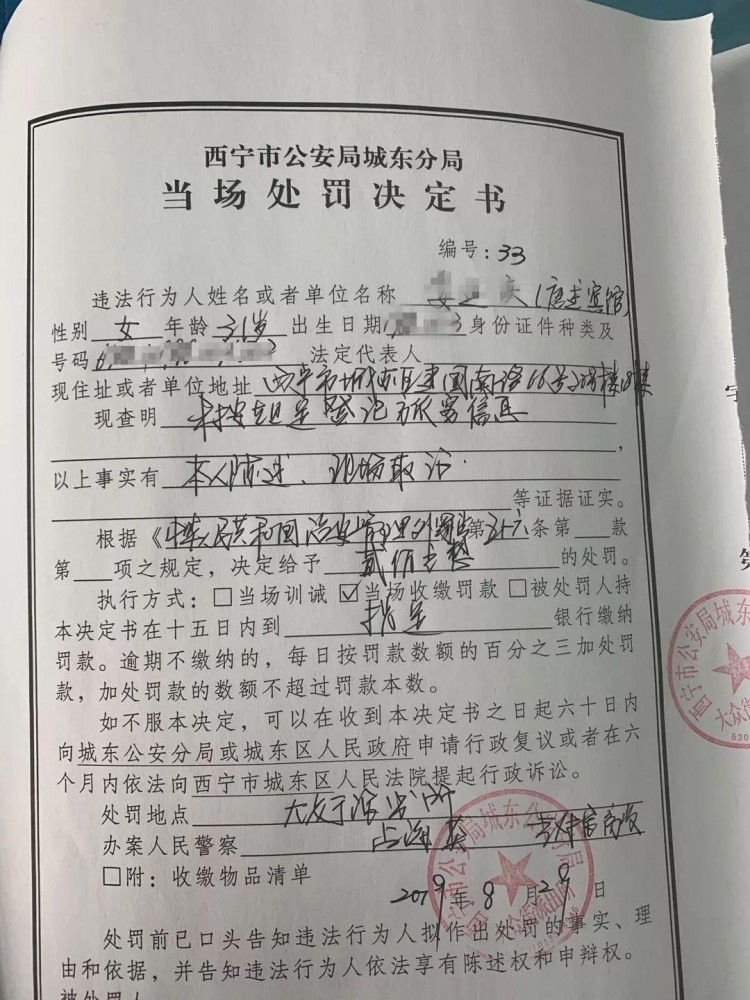 西宁市公安局城东分局
当场处罚决定书
编号:33
违法行为人姓名或者单位名称 (唐建宾馆)
性别 女 年龄 31岁 出生日期 身份证件种类及
号码 法定代表人
现住址或者单位地址 西宁市城 建国南路66号
现查明 未按规定登记旅客信息
,
以上事实有 本人陈述、现场取证
等证据证实。
根据《中华人民共和国治安管理处罚法》第五十六条第 款
第 项之规定,决定给予 贰佰元整 的处罚。
执行方式:□当场训诫 ☑当场收缴罚款 □被处罚人持
本决定书在十五日内到 指定 银行缴纳
罚款。逾期不缴纳的,每日按罚款数额的百分之三加处罚
款,加处罚款的数额不超过罚款本数。
如不服本决定,可以在收到本决定书之日起六十日内
向城东公安分局或城东区人民政府申请行政复议或者在六
个月内依法向西宁市城东区人民法院提起行政诉讼。
处罚地点 大众街派出所
办案人民警察
□附:收缴物品清单
2019年8月29日
处罚前已口头告知违法行为人拟作出处罚的事实、理
由和依据,并告知违法行为人依法享有陈述权和申辩权。
被处罚人
西宁市公安局城东
大众街